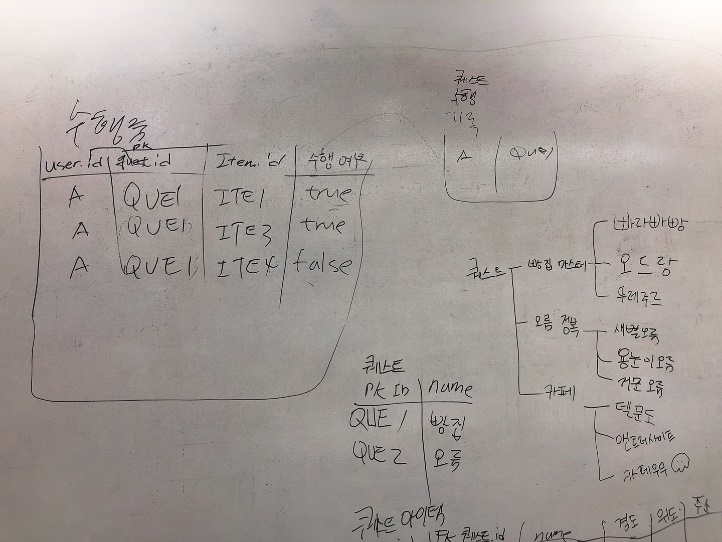 수행중
PK
user.id quest.id Item.id 수행여부
A QUE1 ITE1 true
A QUE1 ITE3 true
A QUE1 ITE4 false
퀘스트
수행
기록
A QUE1
퀘스트
빵집 마스터
빠라빠빵
오드랑
뚜레쥬르
오름 정복
새별오름
용눈이오름
카페
델문도
앤트러사이트
카페우유
퀘스트
PK ID name
QUE1 빵집
QUE2 오름
퀘스트아이템
FK 퀘스트.id name 경도 위도